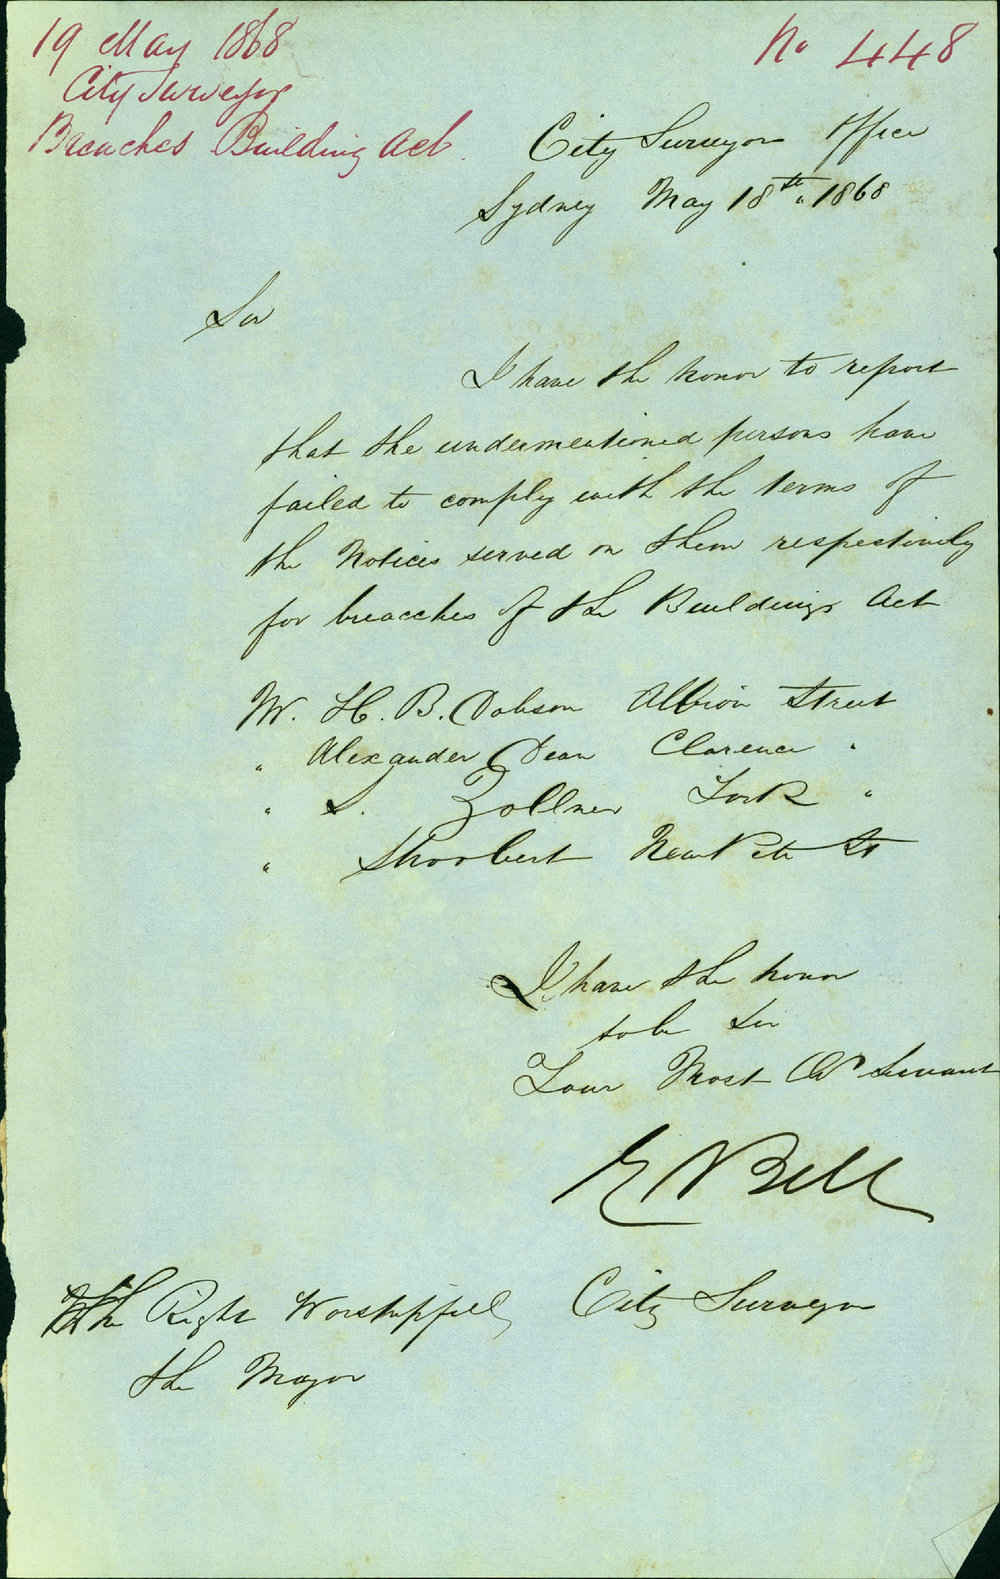 19 May 1868
City Surveyor
Breaches Building Act.
No 448
City Surveyors Office
Sydney May 18th. 1868
Sir
I have the honor to report
that the undermentioned persons have
failed to comply with the terms of
the Notices served on them respectively
for breacches of the Buildings Act
W. H. B. Dobson Albion Street
" Alexander Dean Clarence "
" L. Zollner York "
" Shorbert New Pitt St
I have the honor
to be Sir
Your Most Ob Servant
E Bell
City Surveyor
The Right Worshipfull
the Mayor